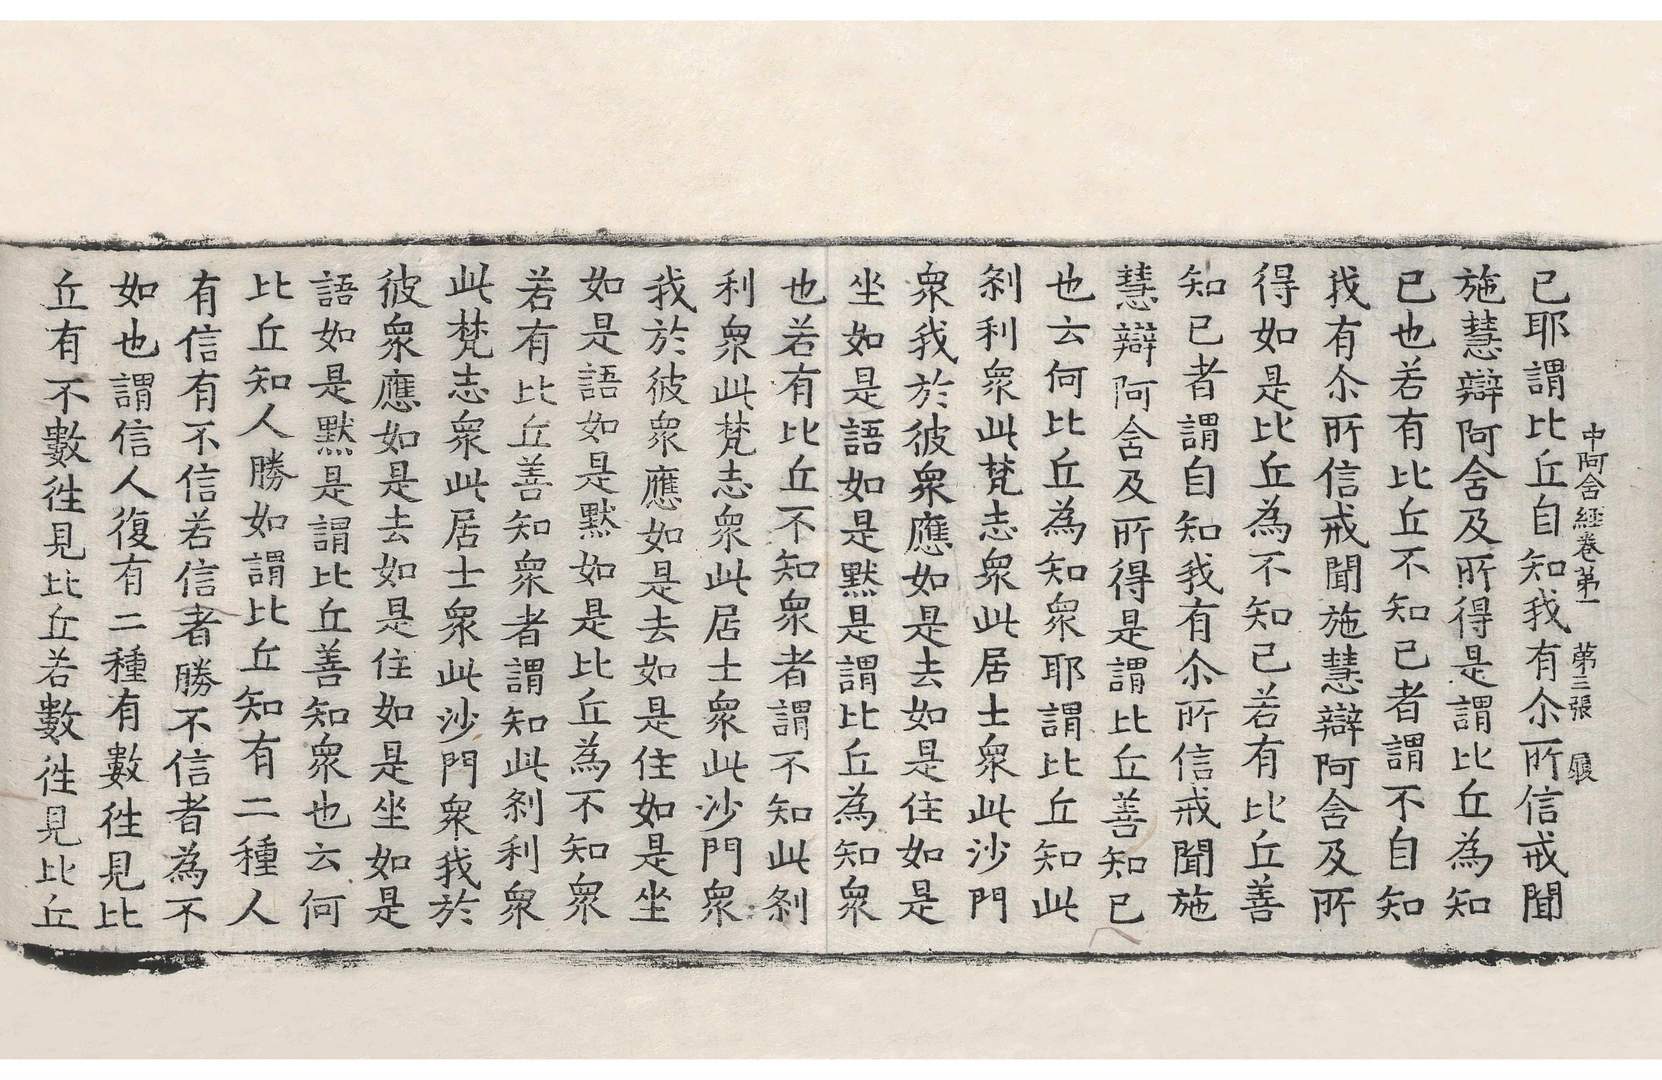 中阿含經卷第一　第三張　履
己耶謂比丘自知我有尒所信戒聞
施慧辯阿含及所得是謂比丘為知
己也若有比丘不知己者謂不自知
我有尒所信戒聞施慧辯阿含及所
得如是比丘為不知己若有比丘善
知己者謂自知我有尒所信戒聞施
慧辯阿含及所得是謂比丘善知己
也云何比丘為知衆耶謂比丘知此
剎利衆此梵志衆此居士衆此沙門
衆我於彼衆應如是去如是住如是
坐如是語如是默是謂比丘為知衆
也若有比丘不知衆者謂不知此剎
利衆此梵志衆此居士衆此沙門衆
我於彼衆應如是去如是住如是坐
如是語如是默如是比丘為不知衆
若有比丘善知衆者謂知此剎利衆
此梵志衆此居士衆此沙門衆我於
彼衆應如是去如是住如是坐如是
語如是默是謂比丘善知衆也云何
比丘知人勝如謂比丘知有二種人
有信有不信若信者勝不信者為不
如也謂信人復有二種有數徃見比
丘有不數徃見比丘若數徃見比丘